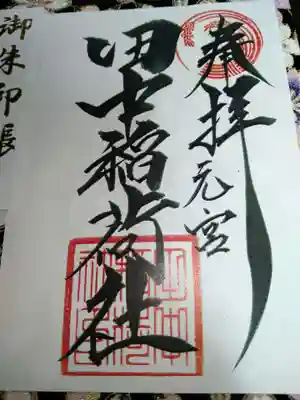 奉拝
元宮
田中稲荷社
御朱印帳